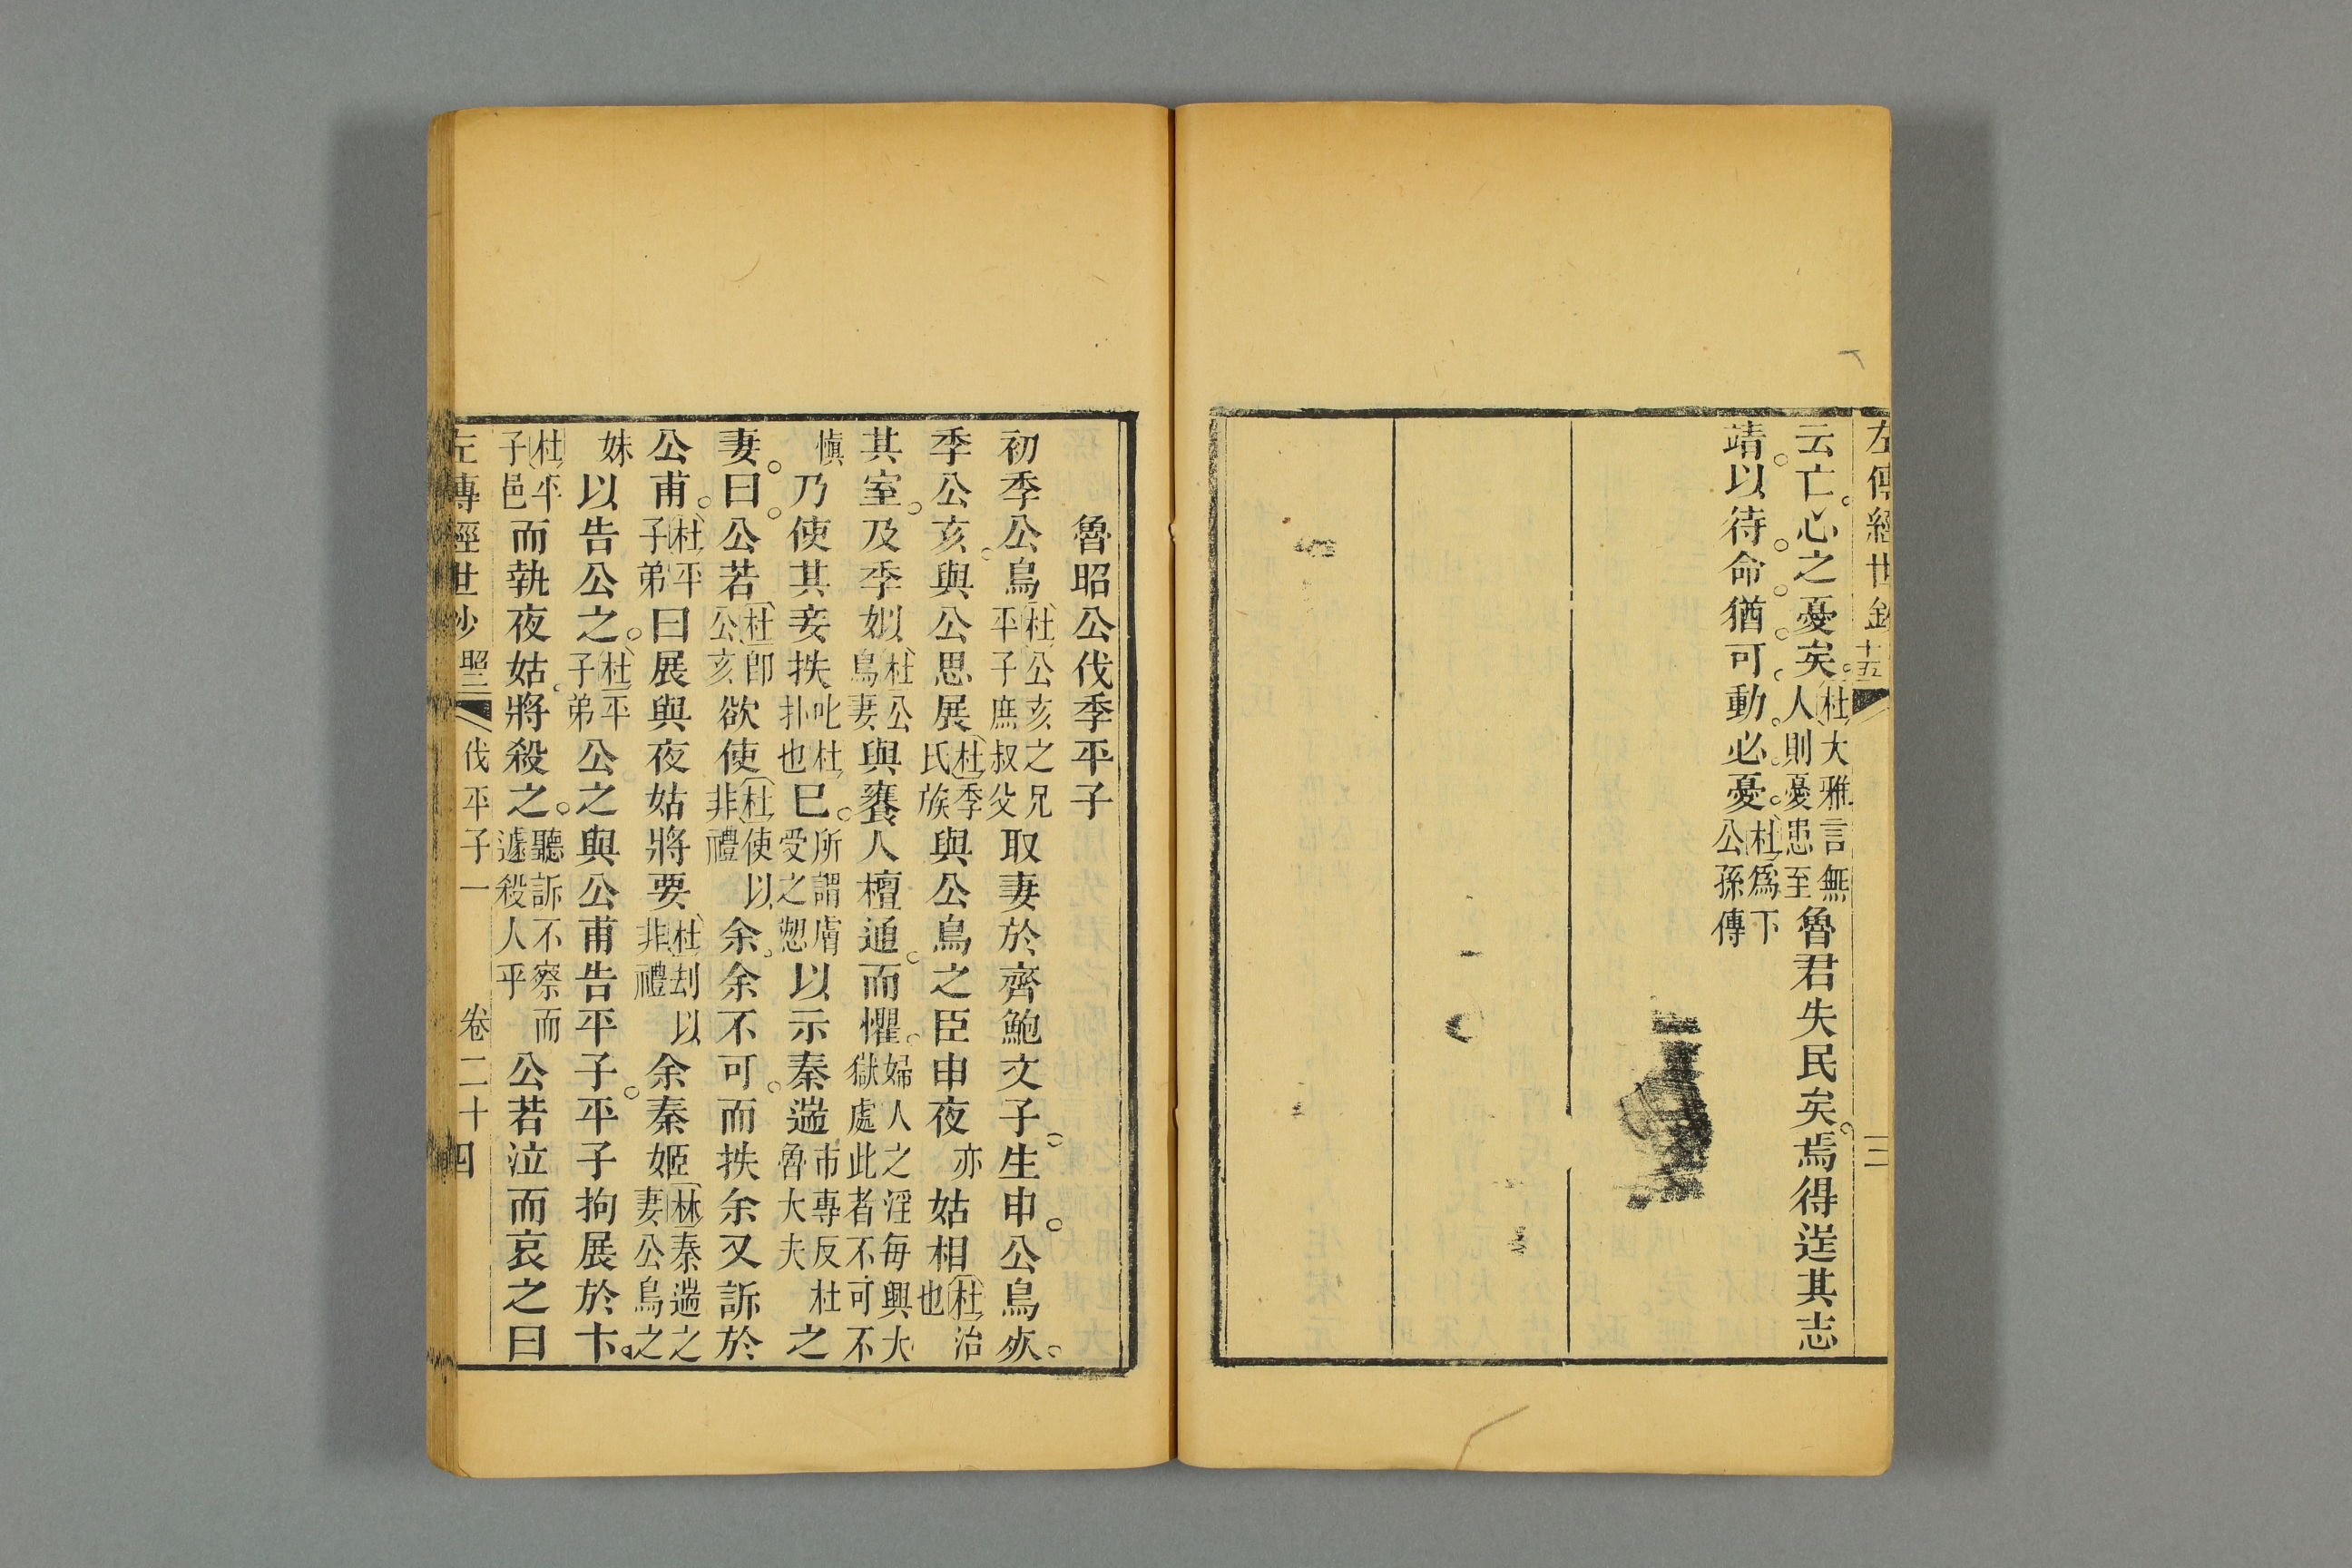 左傳經世鈔 十五 三
云亡心之憂矣杜大雅言無人則憂患至魯君失民矣焉得逞其志
靖以待命猶可動必憂杜爲下公孫傳
魯昭公伐季平子
初季公鳥杜公亥之兄平子庶叔父取妻於齊鮑文子生申公鳥死
季公亥與公思展杜季氏族與公鳥之臣申夜亦姑相杜治也
其室及季姒杜公鳥妻與饔人檀通而懼婦人之淫每興大獄處此者不可不
慎乃使其妾抶叱杜扑也已所謂膚受之愬以示秦遄市專反杜魯大夫之
妻曰公若杜卽公亥欲使杜使以非禮余余不可而抶余又訴於
公甫杜平子弟曰展與夜姑將要杜劫以非禮余秦姬林秦遄之妻公鳥之
妹以告公之杜平子弟公之與公甫告平子平子拘展於卞
杜平子邑而執夜姑將殺之聽訴不察而遽殺人乎公若泣而哀之曰
左傳經世鈔 昭二 伐平子一 卷二十四